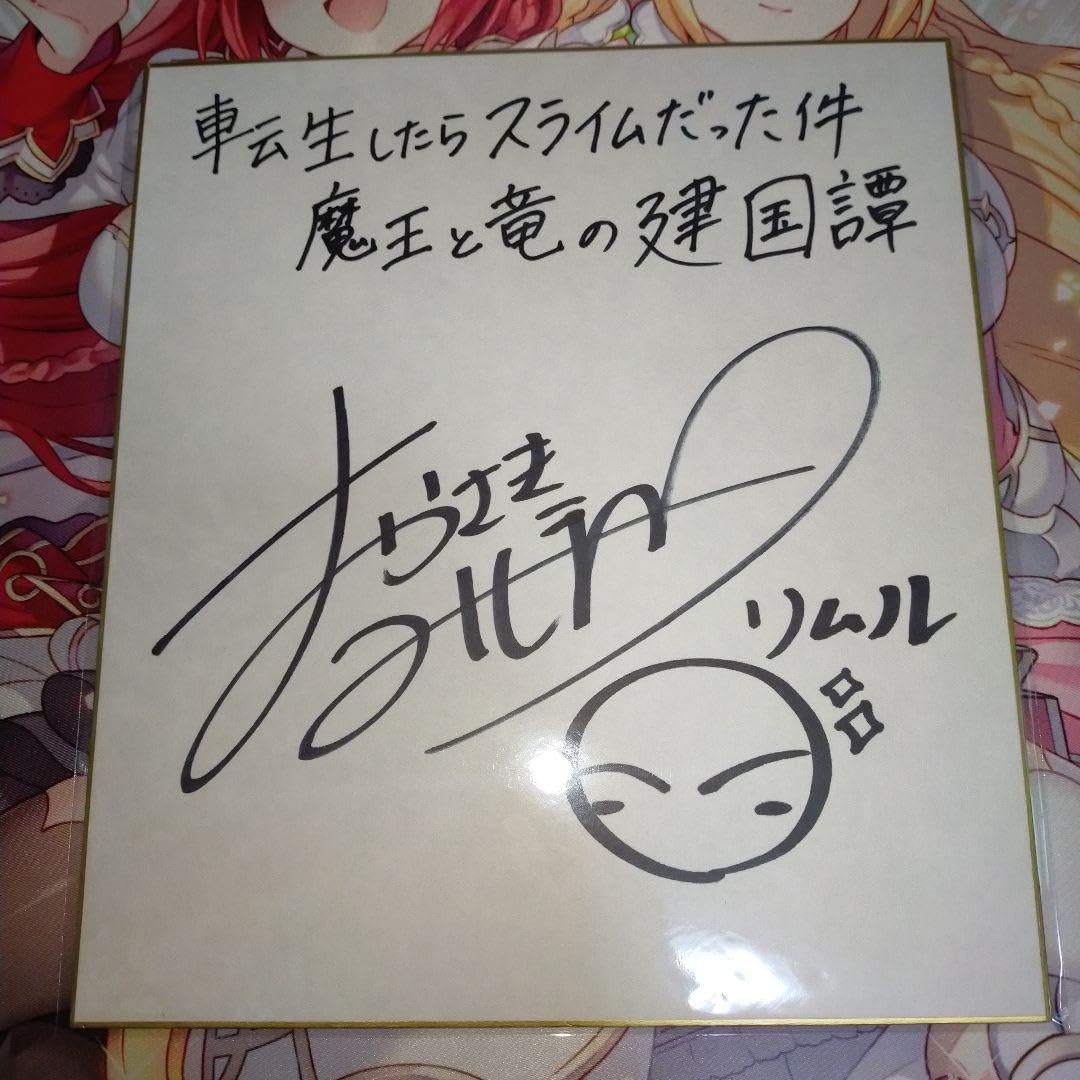 転生したらスライムだった件
魔王と竜の建国譚
おかさきみほ
リムル